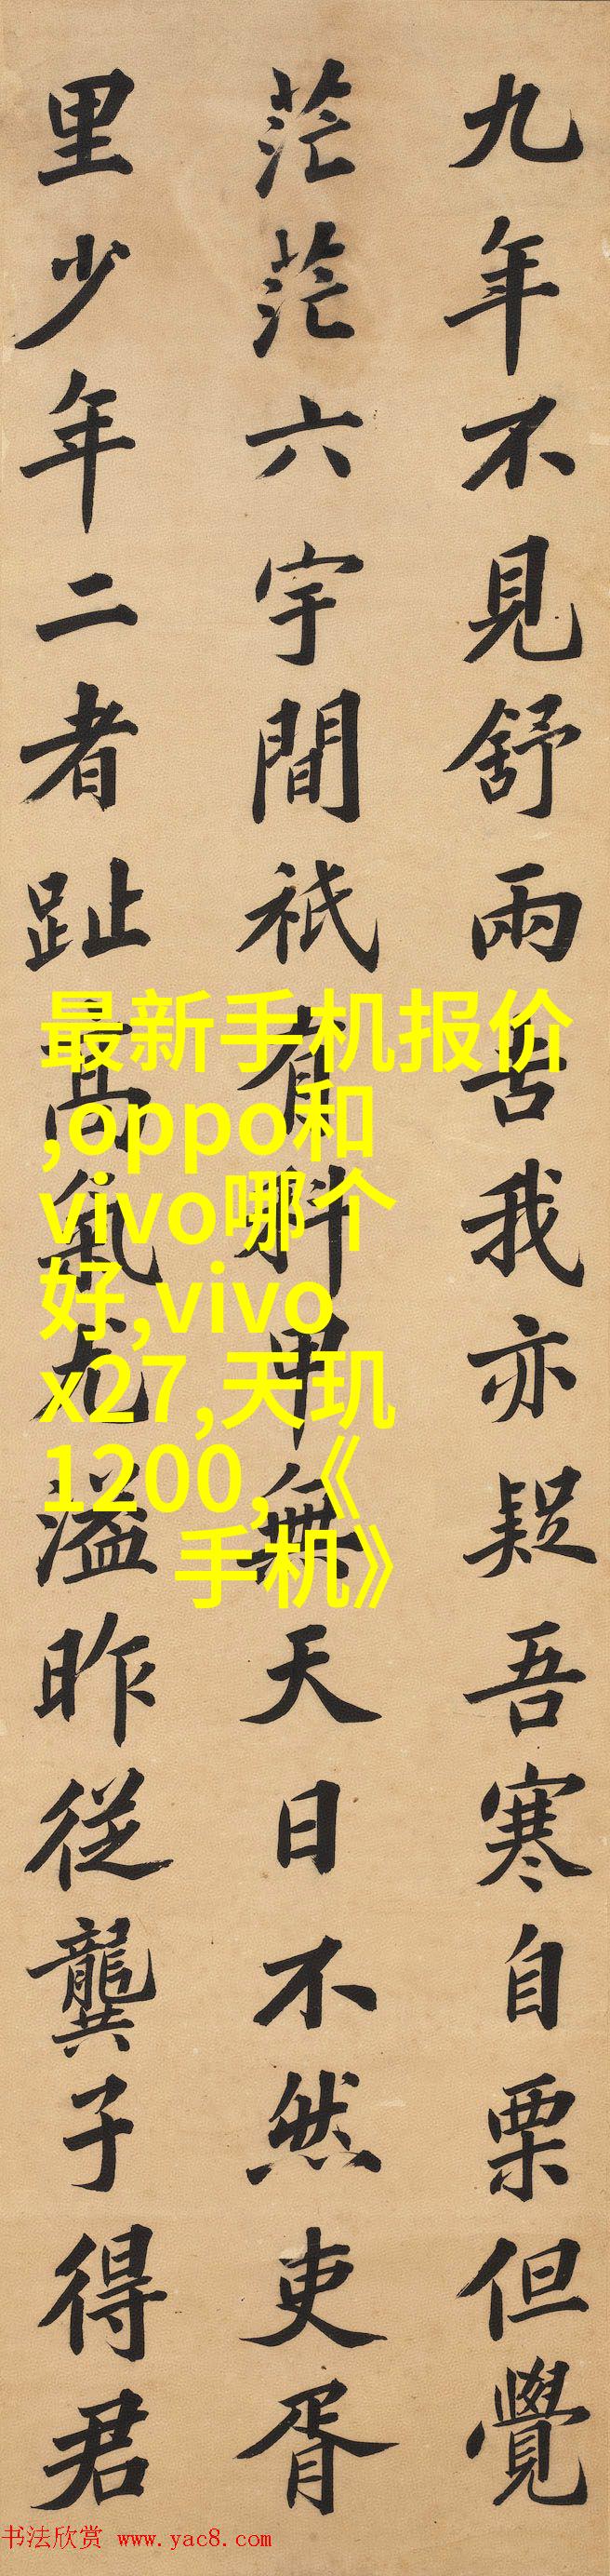 九年不見舒雨吾我亦疑吾寒自栗但覺
茫茫六宇間祇有科甲無天日不然吏胥
里少年二者趾高氣尤溢昨從龔子得君
最新手机报价
,oppo和
vivo哪个
好,vivo
x27,天玑
1200,《
手机》
书法欣赏 www.yac8.com